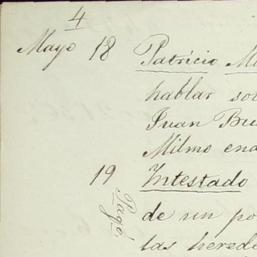 4
Mayo 18 Patricio Mi
hablar so
Juan Bu
Milmo ena
19 Intestado
Pagó
de un po
las herede